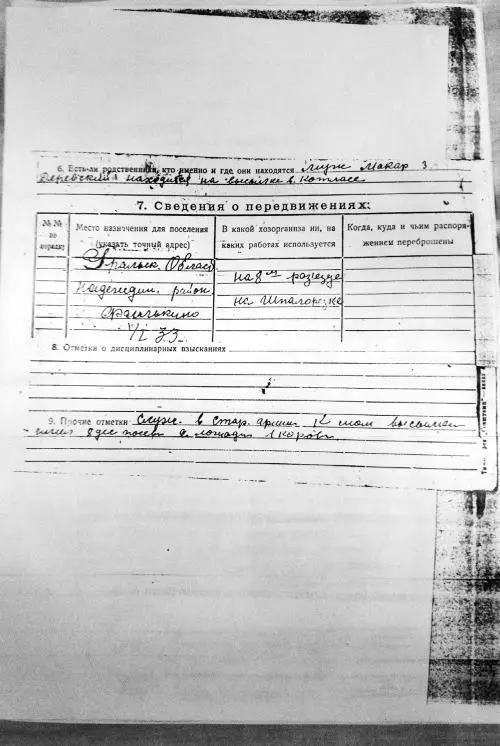 6. Есть-ли родственники, кто именно и где они находятся муж Макар З
Деревский находится на высылке в Котласе
7. Сведения о передвижениях:
№№ по порядку
Место назначения для поселения (указать точный адрес)
В какой хозорганиза ии, на каких работах используется
Когда, куда и чьим распоряжением переброшены
Уральск. Област
Надеждин. район
V/I 33
на 8м разъезде
на Шпалорезке
8. Отметки о дисциплинарных взысканиях
9. Прочие отметки Служ. в стар. армии К
имел 8 дес посев 2 лошади 1 коров